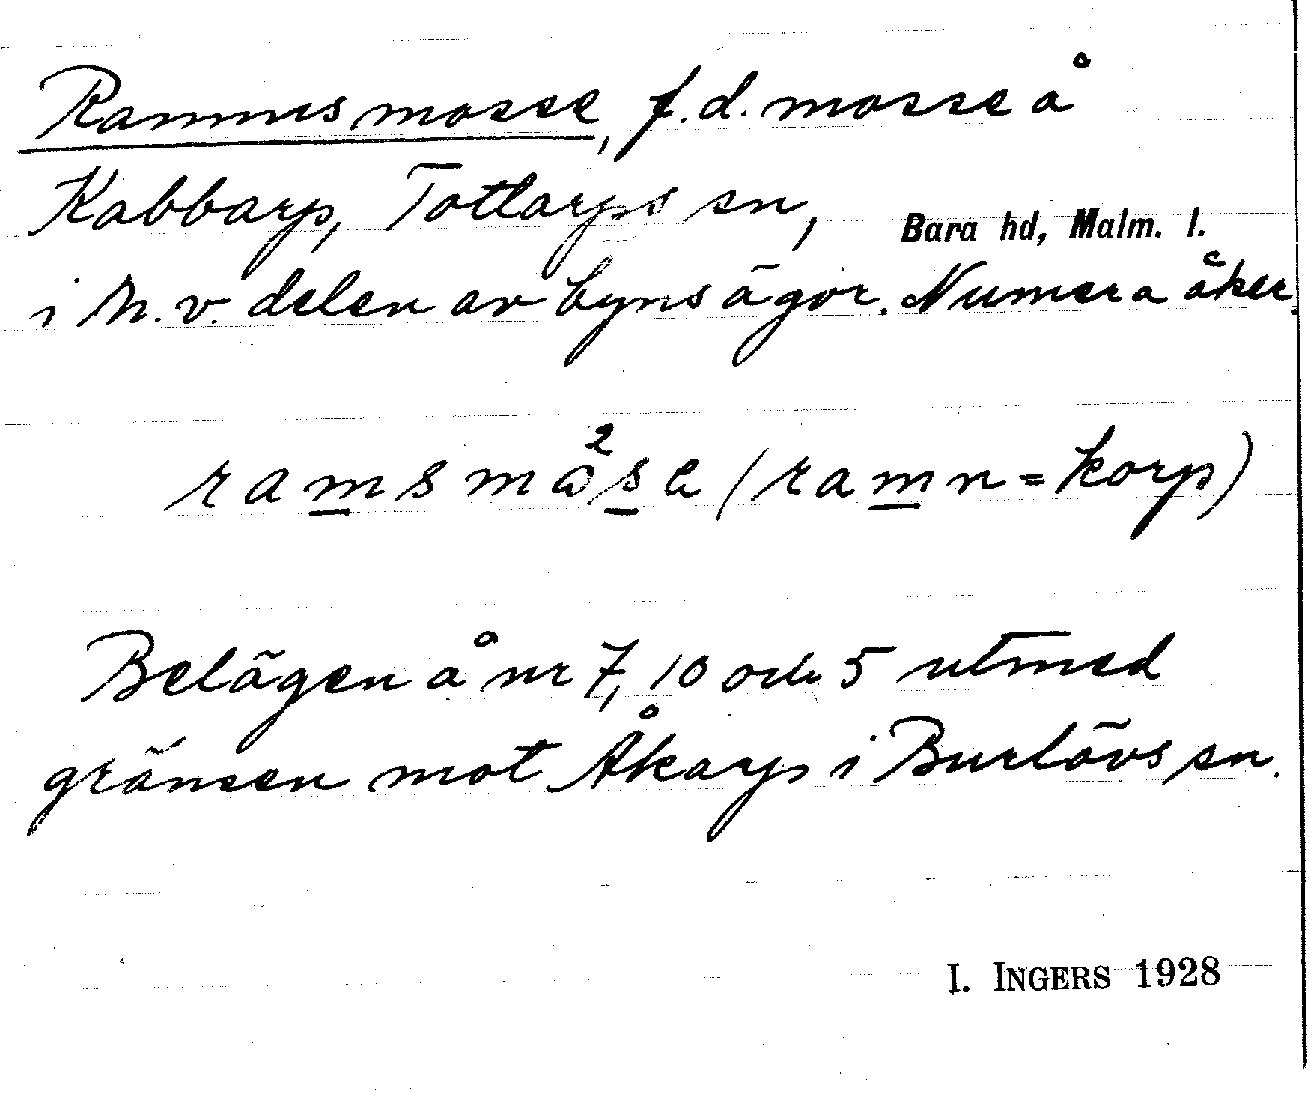 Ramnsmosse, f.d. mosse å
Kabbarp, Tottarps sn, Bara hd, Malm. l.
i n.v. delen av byns ägor. Numera åker.
ramsmå²se (ramn = korp)
Belägen å nr 7, 10 och 5 utmed
gränsen mot Åkarp i Burlövs sn.
I. INGERS 1928